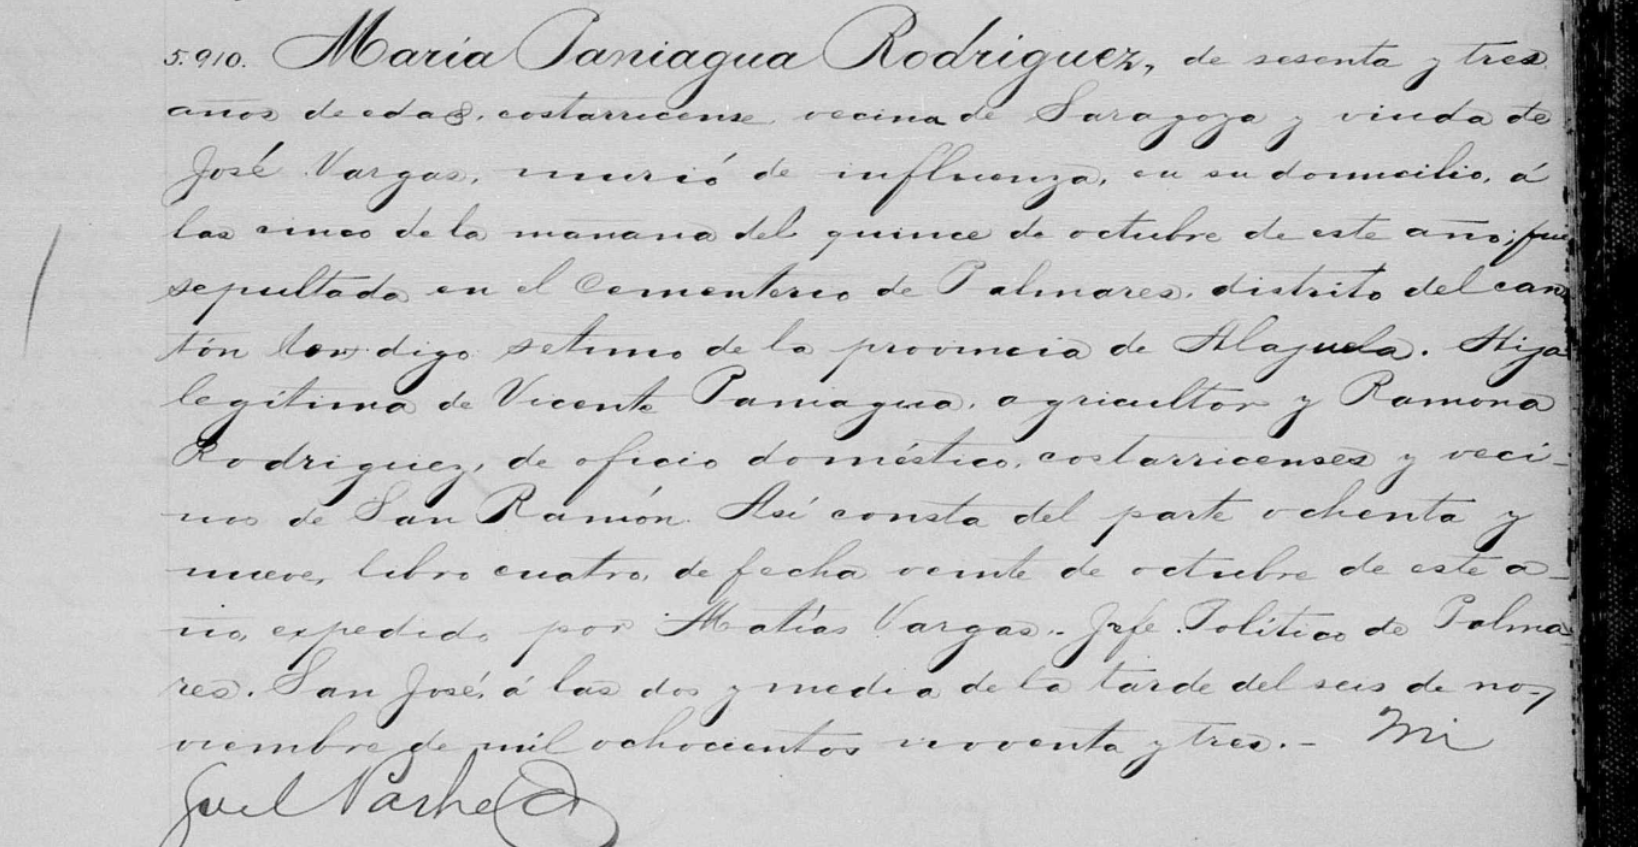 5.910. María Paniagua Rodriguez, de sesenta y tres
años de edad, costarricense, vecina de Saragoza y viuda de
José Vargas, murió de influenza, en su domicilio, á
las cinco de la mañana del quince de octubre de este año; fué
sepultada en el Cementerio de Palmares, distrito del can
tón digo setimo de la provincia de Alajuela. Hija
legítima de Vicente Paniagua, agricultor y Ramona
Rodriguez, de oficio doméstico, costarricenses y veci-
nos de San Ramón. Así consta del parte ochenta y
nueve, libro cuatro, de fecha veinte de octubre de este a-
ño, expedido por Matías Vargas.. Jefe Político de Palma-
res. San José, á las dos y media de la tarde del seis de no-
viembre de mil ochocientos noventa y tres.- Mi
guel Pacheco